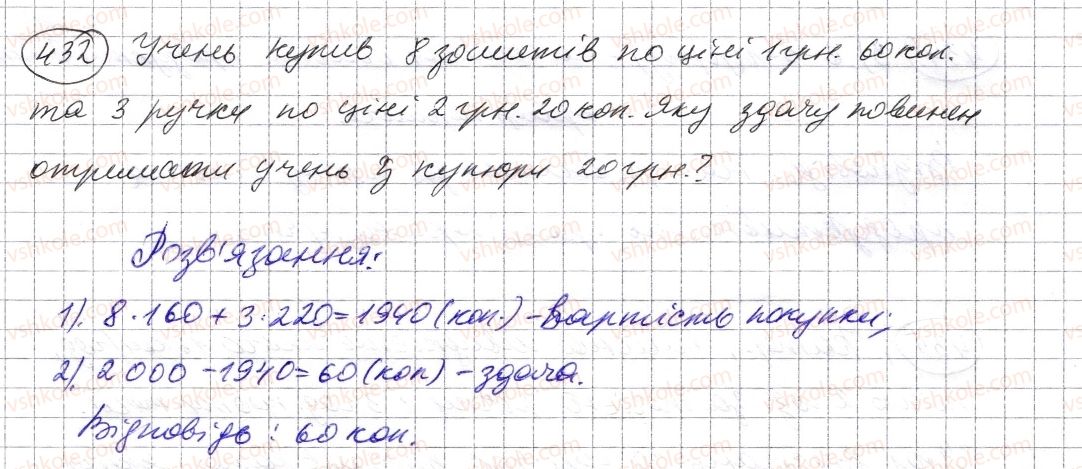 432 Учень купив 8 зошитів по ціні 1 грн. 60 коп.
та 3 ручки по ціні 2 грн. 20 коп. Яку здачу повинен
отримати учень з купюри 20 грн.?
Розв'язання:
1). 8·160+3:220=1940 (коп.) – вартість покупки;
2). 2000-1940=60 (коп) – здача.
Відповідь: 60 коп.